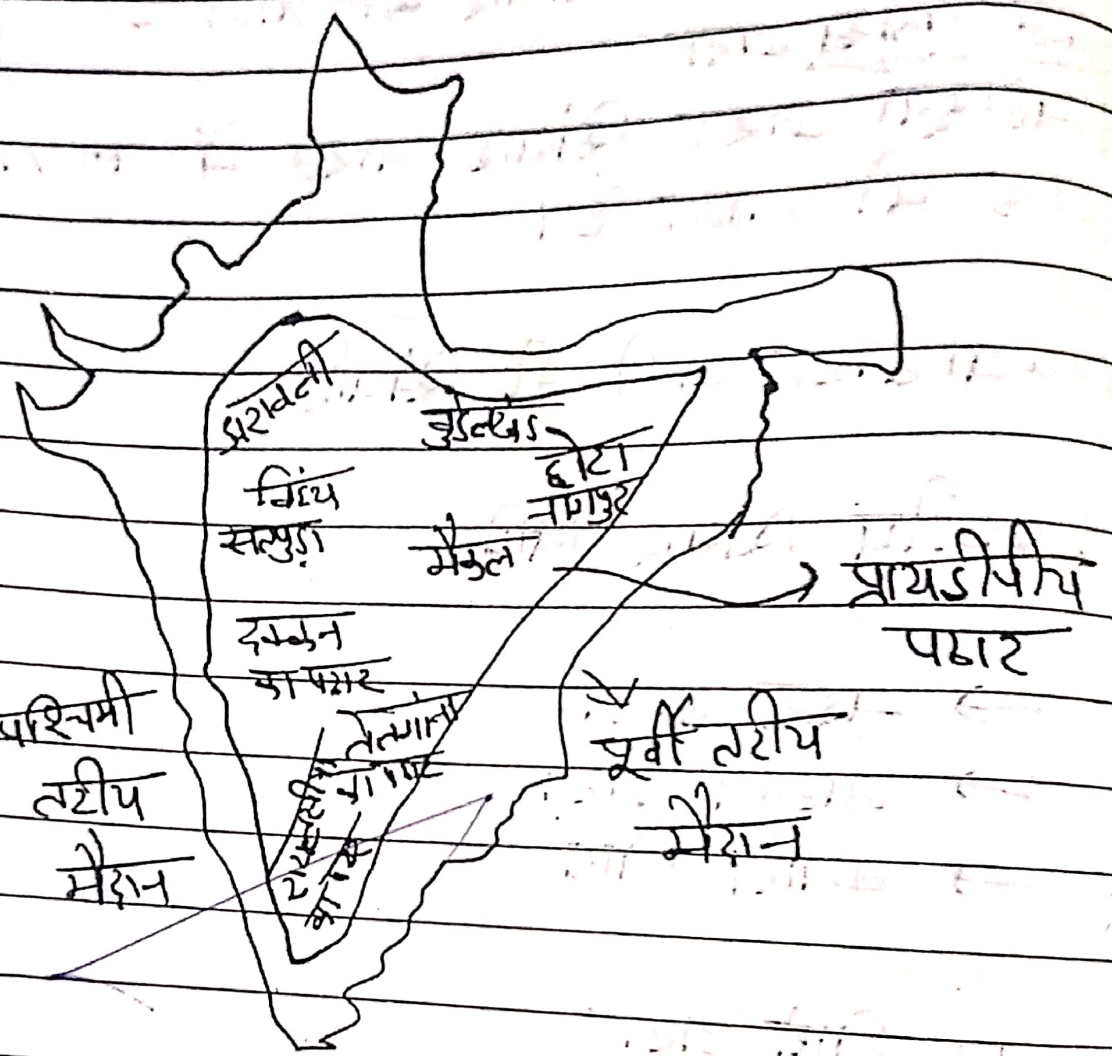 अरावली
बुंदेलखंड
छोटा
नागपुर
विंध्य
सतपुड़ा
मैकुल
प्रायद्वीपीय
पठार
दक्कन
का पठार
तेलंगाना
का पठार
पश्चिमी
तटीय
मैदान
पूर्वी तटीय
मैदान